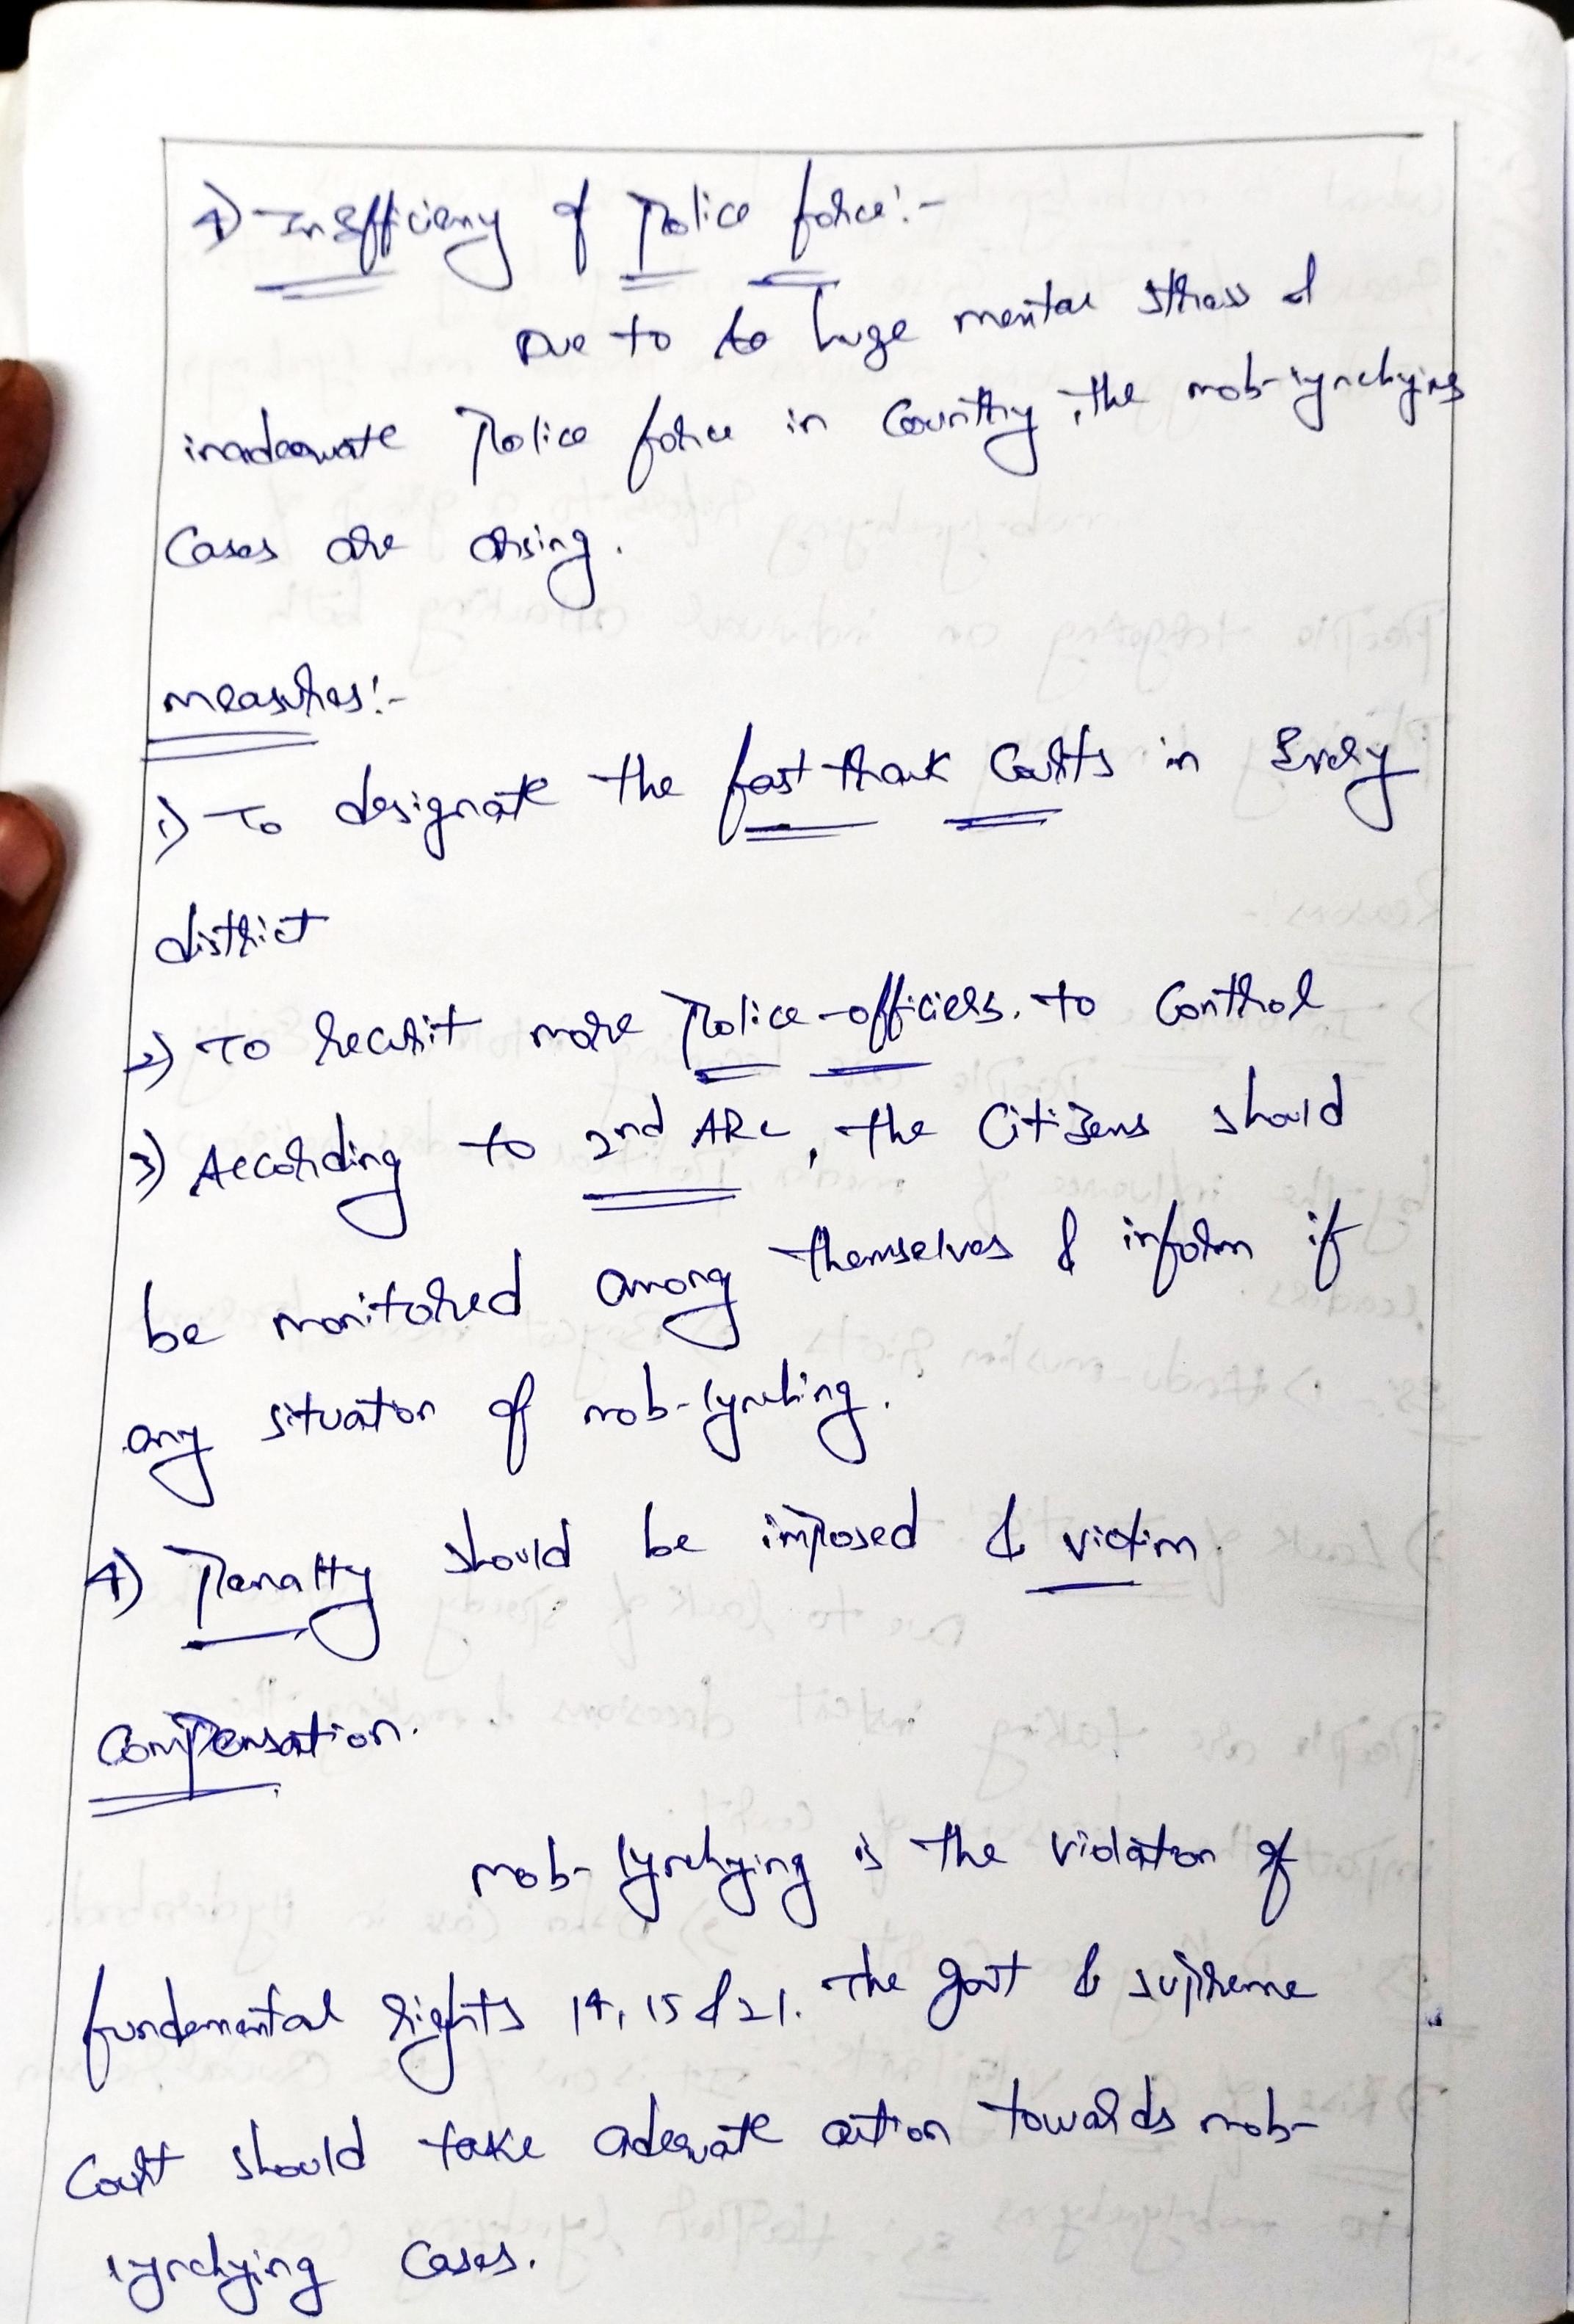 4) Insfficieny of Police force:-
Due to to huge mental stress &
inadeqwate Police force in Country, the mob-lynchying
Cases are arising.
measures:-
1) To designate the fast track Courts in Every
district
2) To recruit more Police-officiers. to Control
3) According to 2nd ARC, the Citizens should
be monitored among themselves & inform if
any situation of mob-lynching.
4) Penalty should be imposed & victim
Compensation.
mob-lynchying is the violation of
fundemental rights 14, 15 & 21. The govt & supreme
Court should take adequate action towards mob-
lynchying Cases.